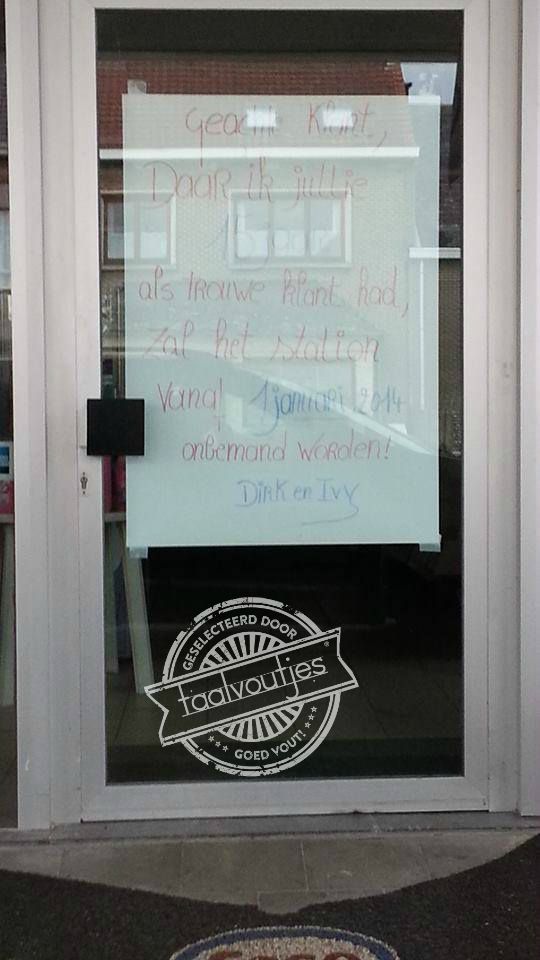 Geachte Klant,
Daar ik jullie
15 jaar
als trouwe klant had,
Zal het station
Vanaf 1 januari 2014
onbemand worden!
Dirk en Ivy
GESELECTEERD DOOR
taalvoutjes
GOED VOUT!